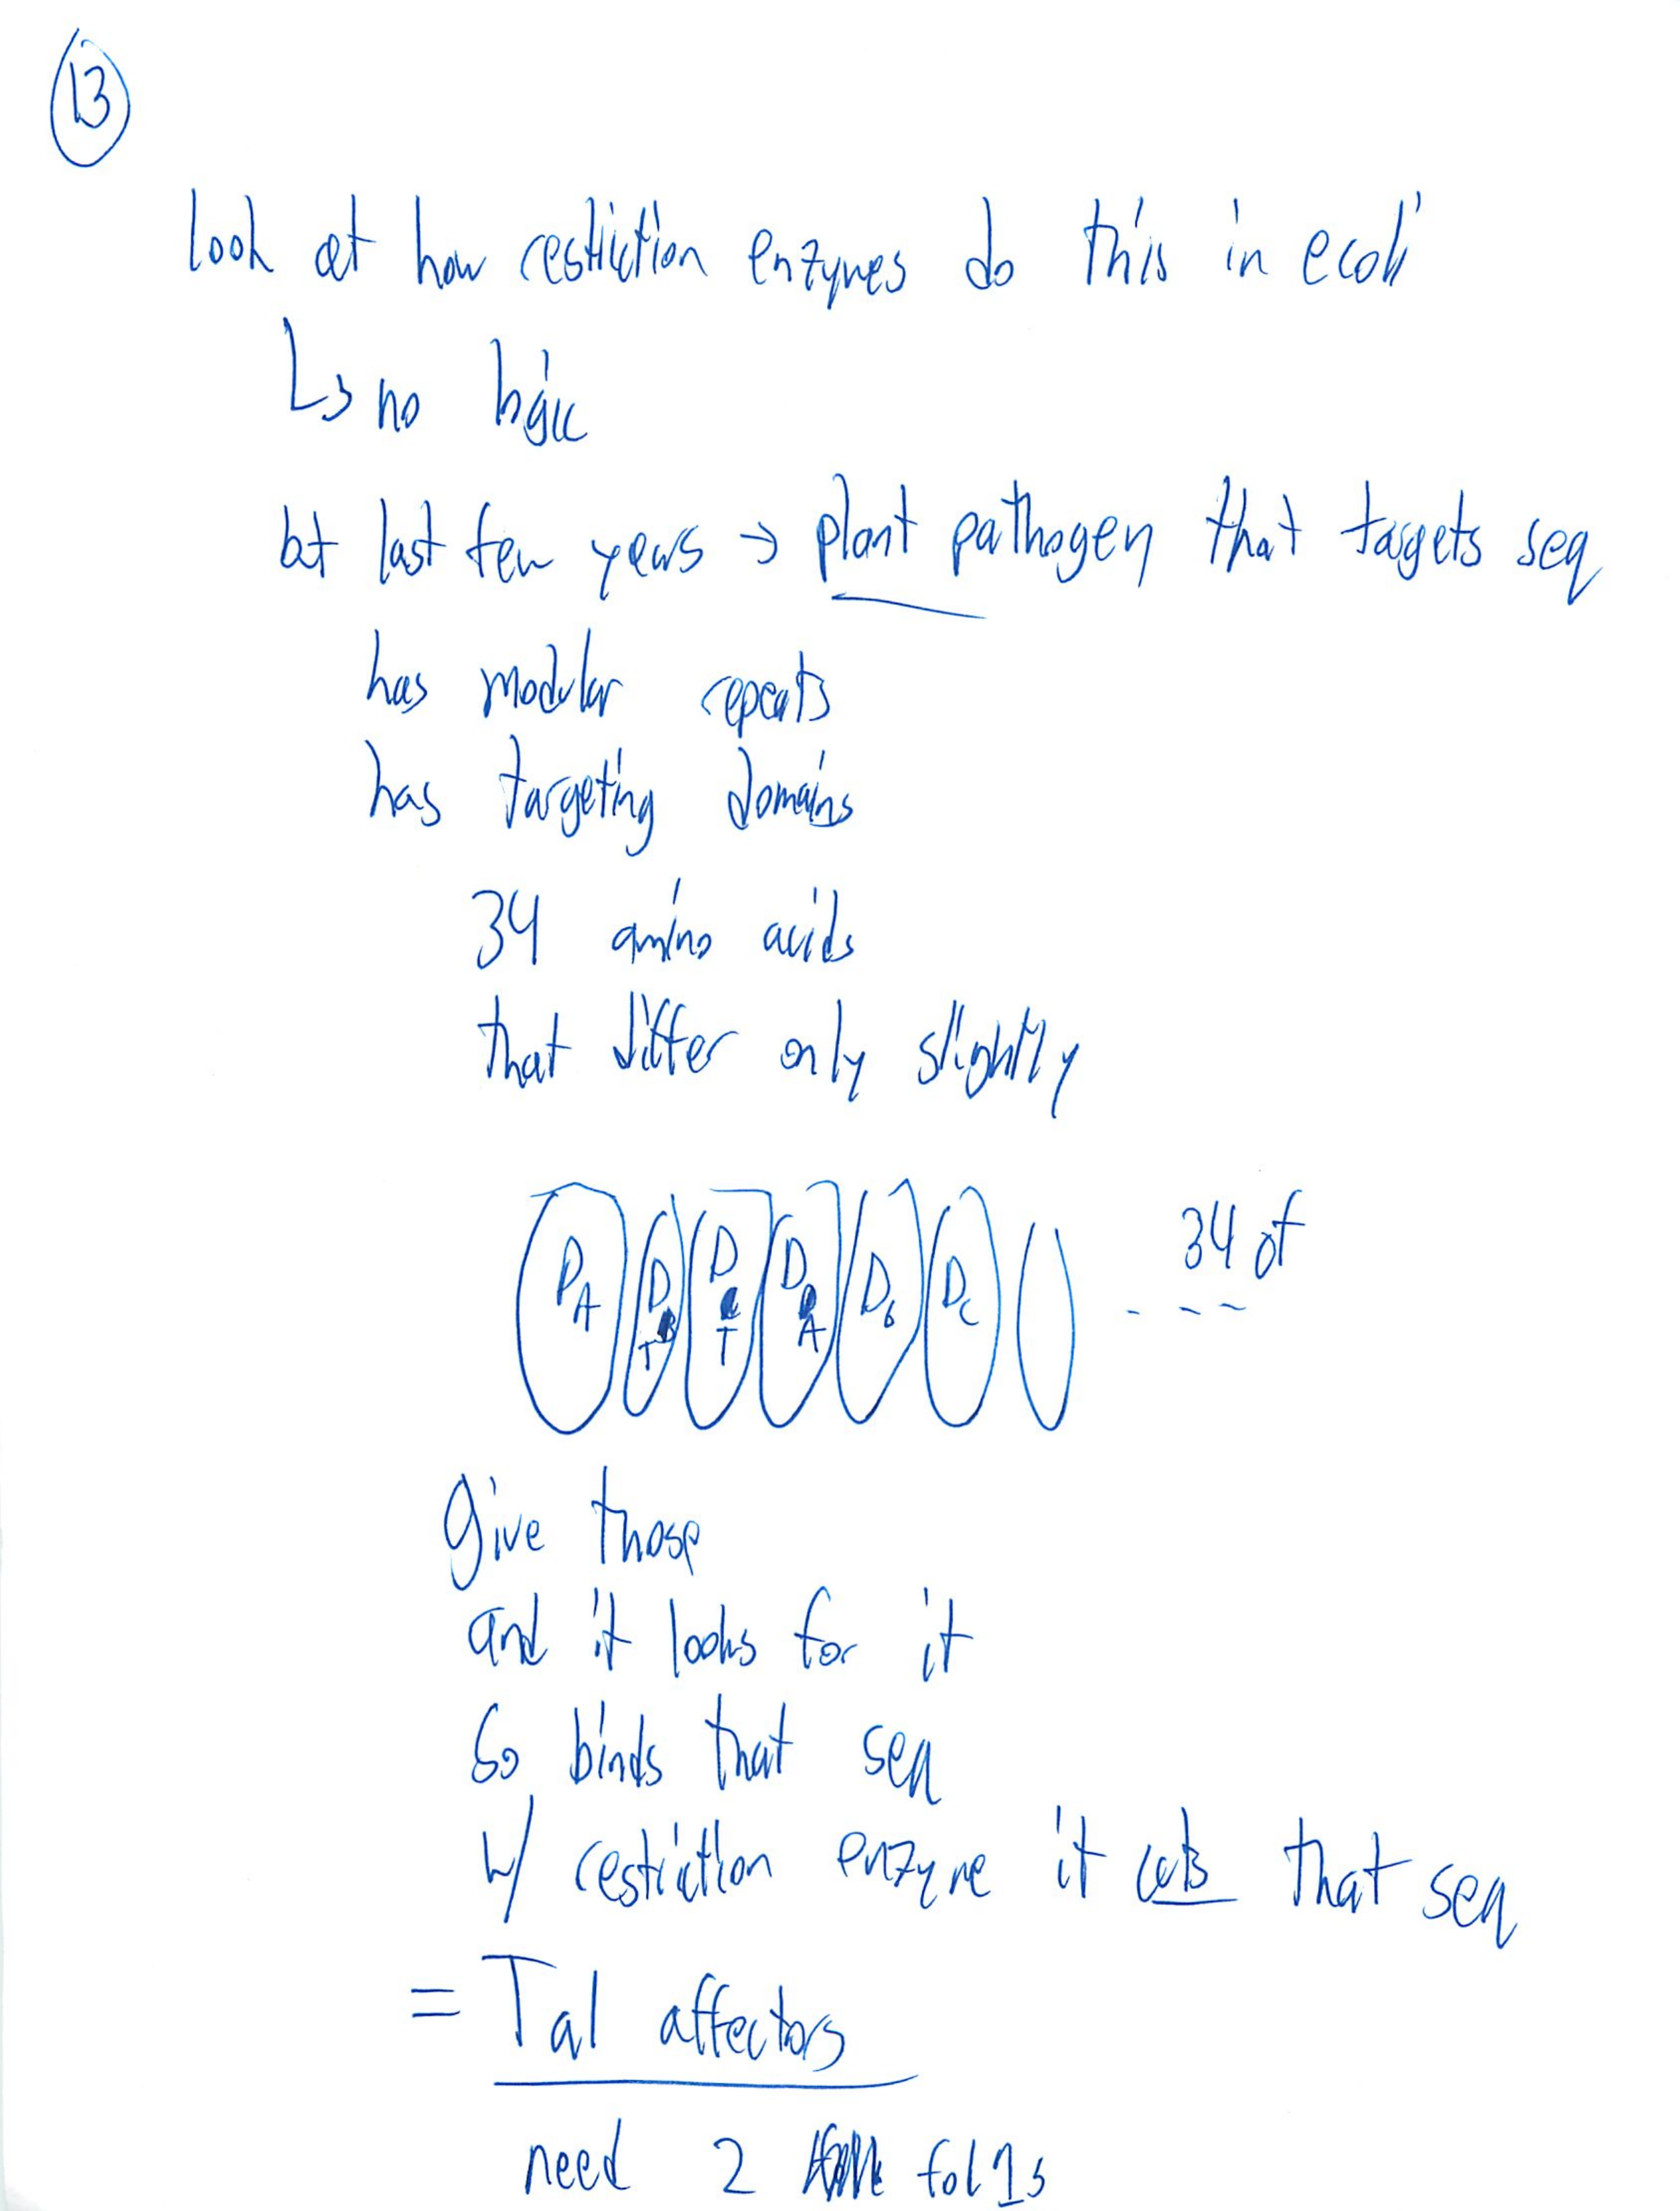 13
Look at how restriction enzymes do this in ecoli
↳ no logic
bt last few years → plant pathogen that targets seq
has modular repeats
has targeting domains
34 amino acids
that differ only slightly
DA DT DT DA DG DC --- 34 of
give those
and it looks for it
So binds that seq
w/ restriction enzyme it cuts that seq
= Tal affectors
need 2 fok1s